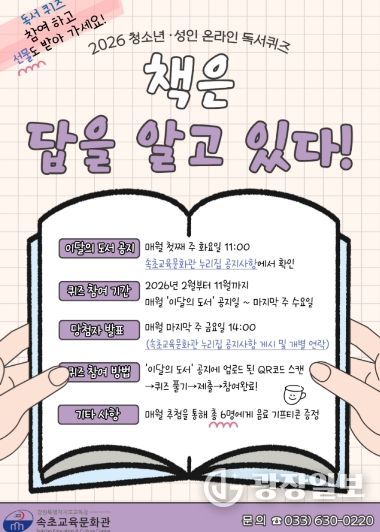 독서 퀴즈
참여 하고
선물도 받아 가세요!
2026 청소년·성인 온라인 독서퀴즈
책은
답을 알고 있다!
이달의 도서 공지 매월 첫째 주 화요일 11:00
속초교육문화관 누리집 공지사항에서 확인
퀴즈 참여 기간 2026년 2월부터 11월까지
매월 '이달의 도서' 공지일 ~ 마지막 주 수요일
당첨자 발표 매월 마지막 주 금요일 14:00
(속초교육문화관 누리집 공지사항 게시 및 개별 연락)
퀴즈 참여 방법 '이달의 도서' 공지에 업로드 된 QR코드 스캔
→퀴즈 풀기→제출→참여완료!
기타 사항 매월 추첨을 통해 총 6명에게 음료 기프티콘 증정
광장일보
강원특별자치도교육청
속초교육문화관
Sokcho Education & Culture Center
문의 ☎033) 630-0220